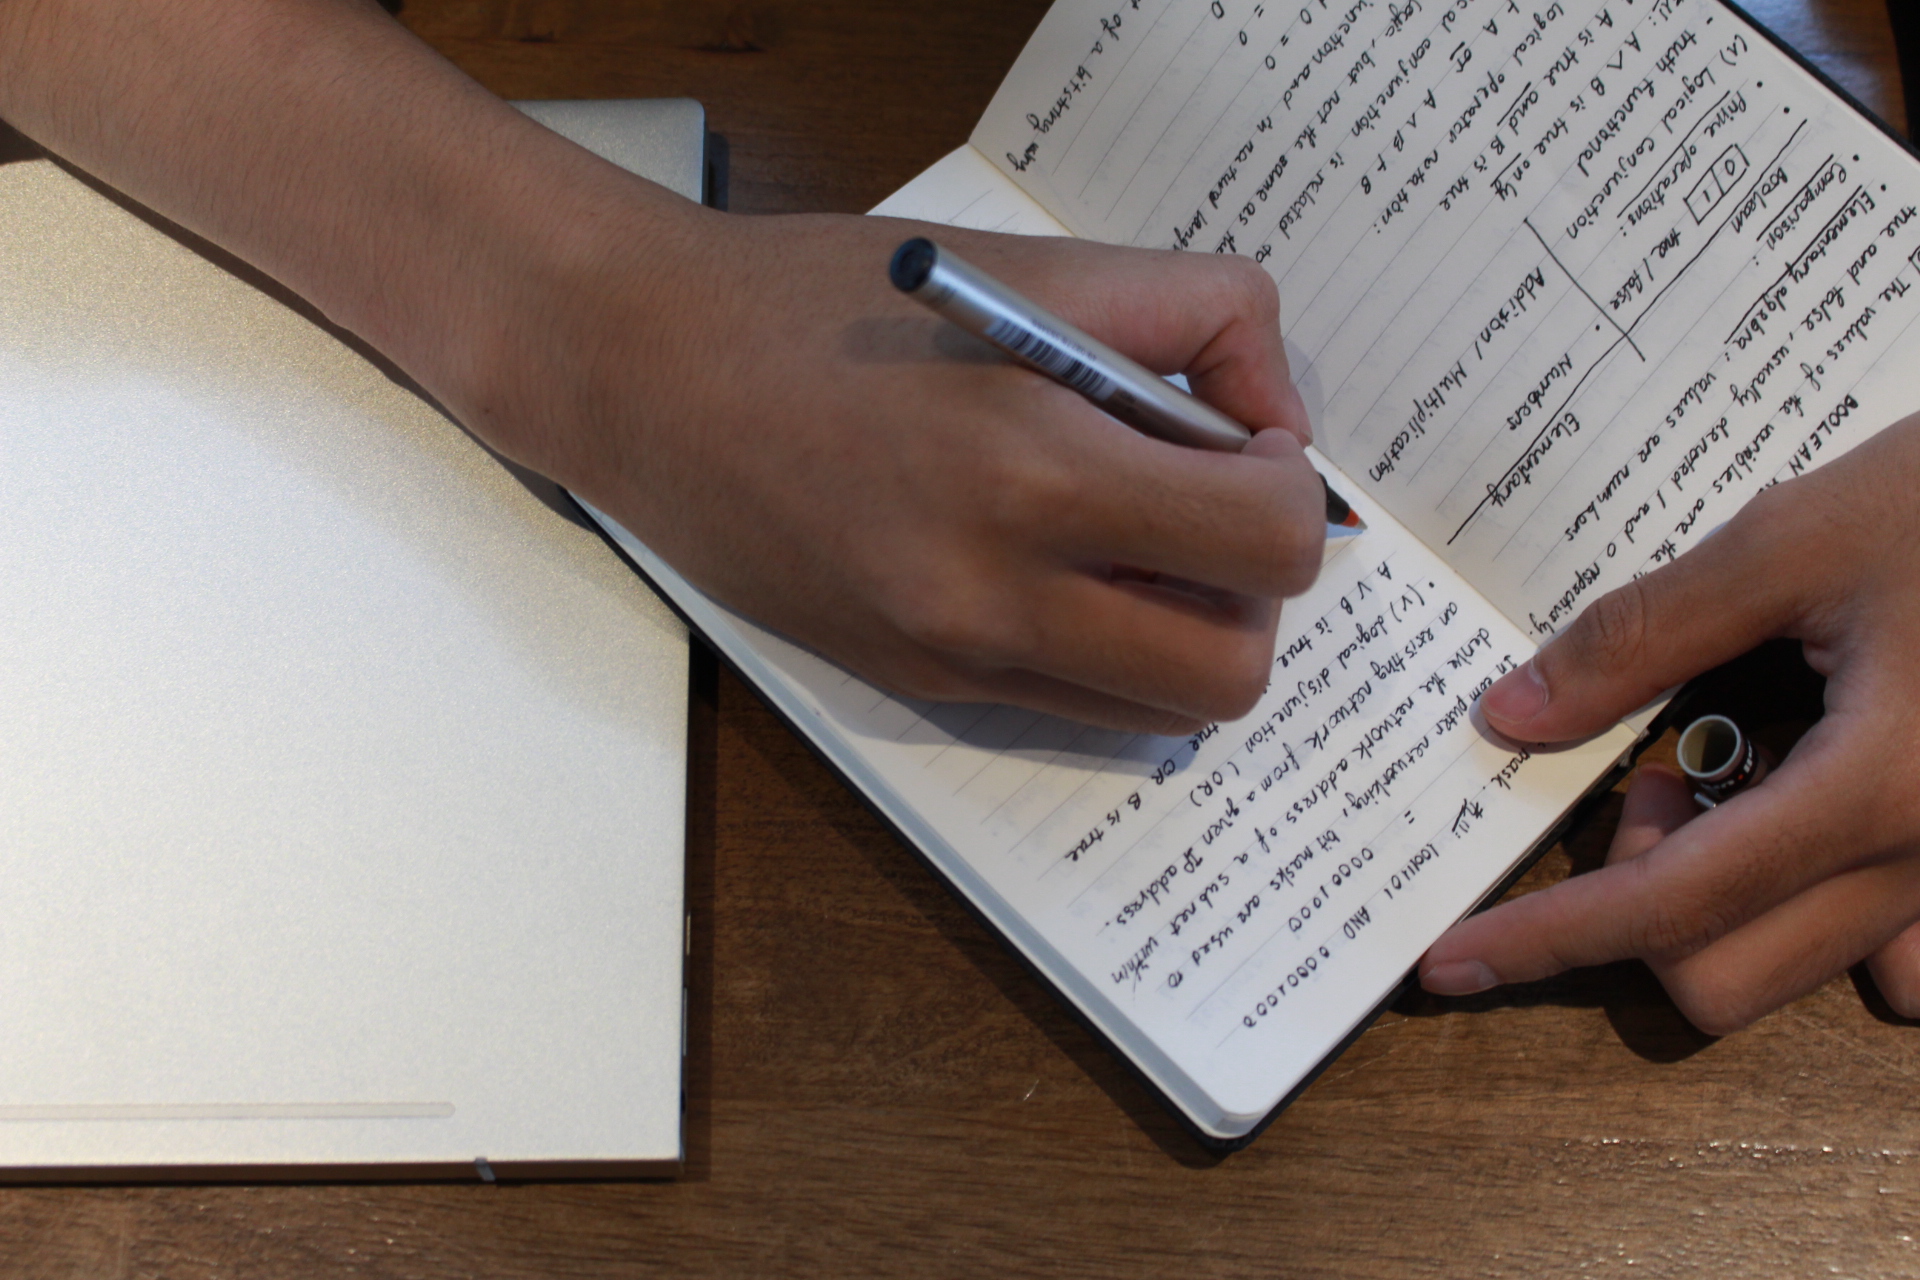 BOOLEAN
The values of the variables are the
true and false, usually denoted 1 and 0 respectively.
• Elementary algebra: values are numbers
• Comparison:
Boolean Elementary
• true / false • Numbers
0 | 1
• Prime operations: Addition / Multiplication
• (∧) Logical conjunction
truth functional
A ∧ B is true only
A is true and B is true
logical operator notation:
⊢ A or A ∧ B ⊢ B
conjunction is related to
logic, but not the same as the
and in natural
0 = 0
= 0
of a bitstring using
mask. 10011101 AND 00001000
= 00001000
In computer networking, bit masks are used to
derive the network address of a subnet within
an existing network from a given IP address.
• (V) Logical disjunction (OR)
A V B is true true OR B is true